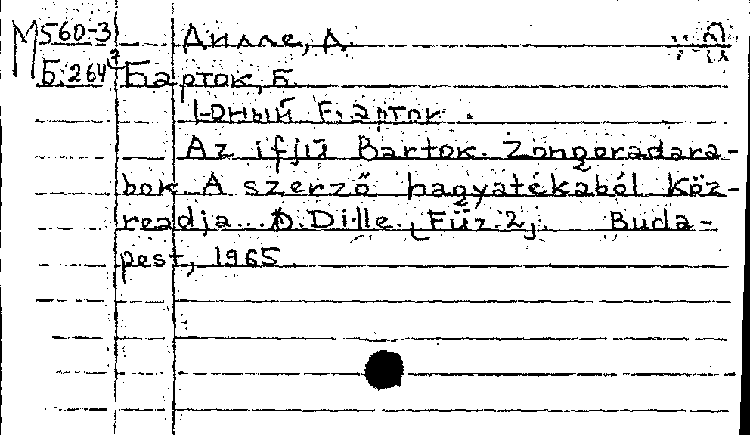 М 560-3 Дилле, Д.
Б.264 Барток, Б.
Юный Барток.
Az ifjú Bartok. Zongoradara-
bok. A szerző hagyatékából köz-
readja D. Dille. [Füz. 2]. Buda-
pest, 1965